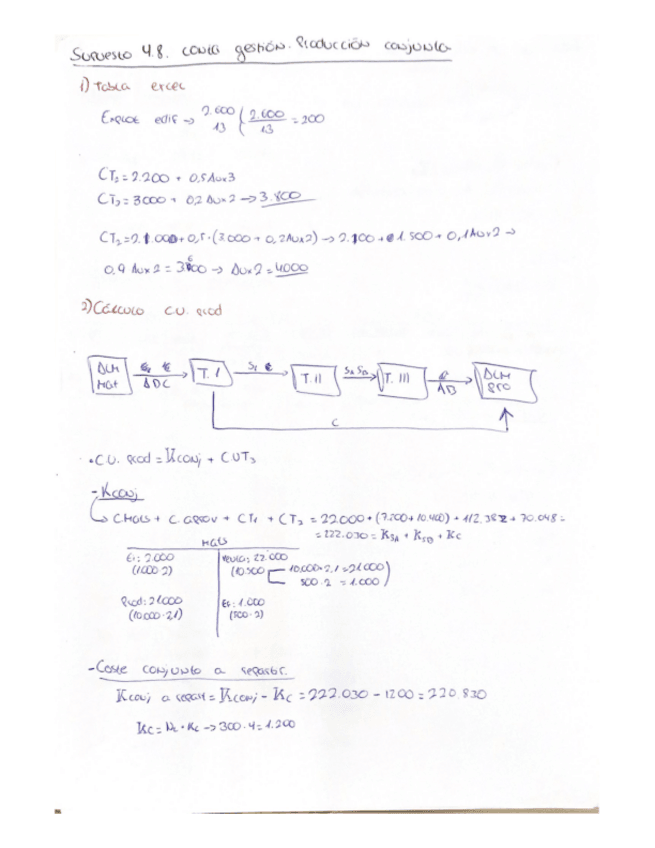 Supuesto 4.8. conta gestión. Producción conjunta
1) Tabla excel
2.600 / 13 { 2.600 / 13 = 200
CT₁ = 2.200 + 0,5 Aux3
CT₃ = 3000 + 0,2 Aux2 → 3.800
+ 0,5 · (3000 + 0,2 Aux2) → 2.100 + 1.500 + 0,1 Aux2 →
0,9 Aux2 = → Aux2 = 4000
2) Cálculo C.U. prod
ALM T. I T. II T. III ALM
C
• C.U. prod = Kconj + CUT₃
- Kconj
↳ CMatS + C. aprov + CT₁ + CT₂ = 22.000 + (7.200 + 10.400) + 112.382 + 70.048 =
= 222.030 = KSA + KSB + KC
Ei: 2.000
(1000·2)
(10.500 10.000·2,1 = 21.000)
500·2 = 1.000
Prod: 21.000 Ef: 1.000
(10.000·2,1) (500·2)
- Coste conjunto a repartir.
Kconj a repart = Kconj - KC = 222.030 - 1200 = 220.830
KC = Nc · Kc → 300 · 4 = 1.200